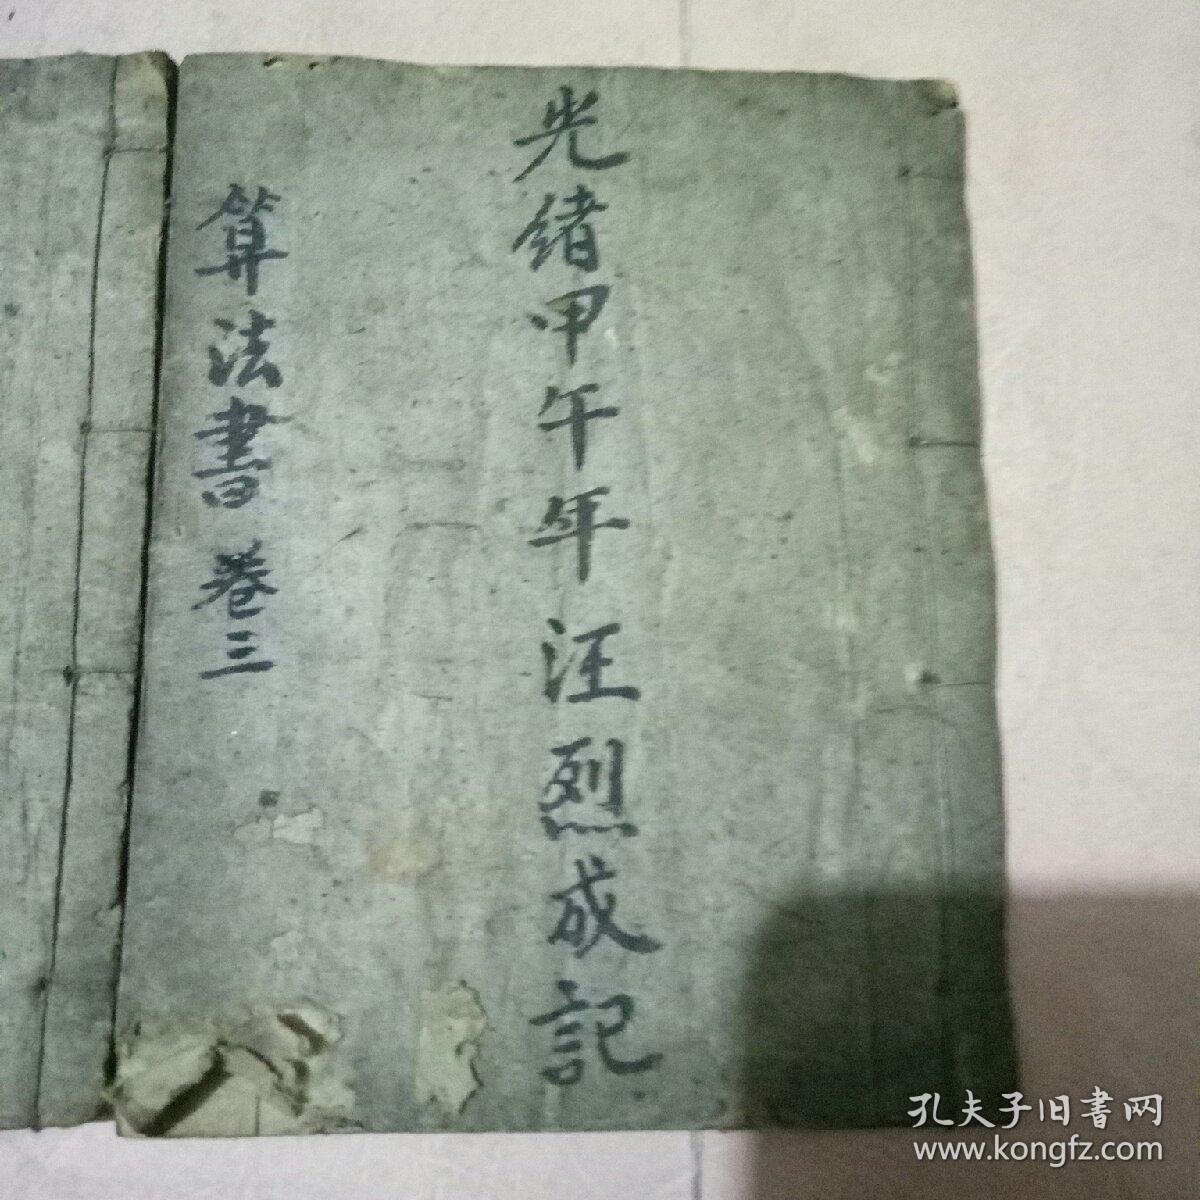 光緒甲午年汪烈成記
算法書 卷三
孔夫子旧書网
www.kongfz.com